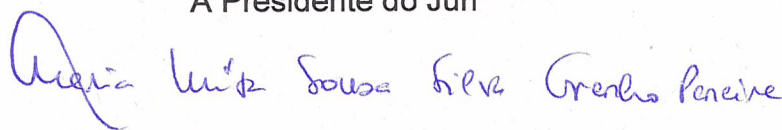 A Presidente do Júri
Maria Luísa Sousa Silva Granho Pereira